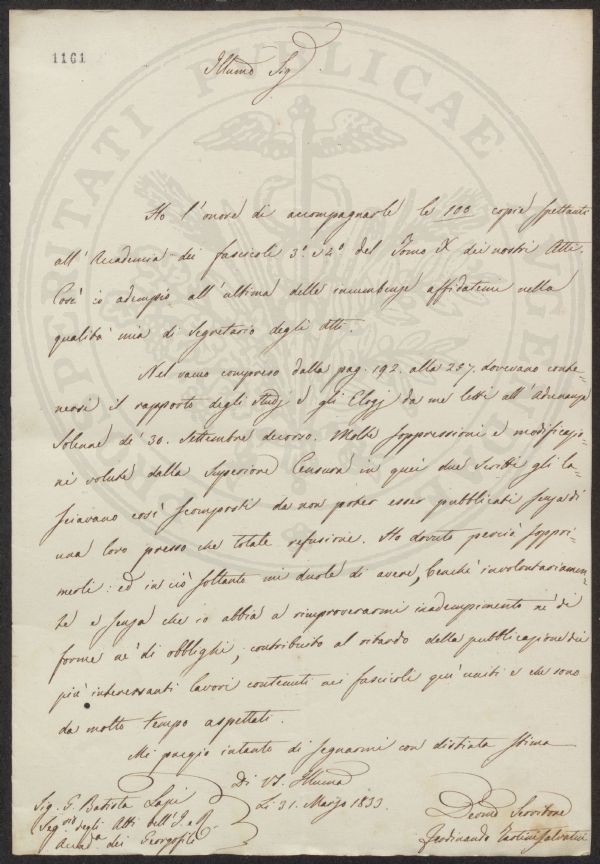 1161
Illumo Sig
Ho l'onore di accompagnarle le 100 copie spettanti
all'Accademia dei fascicoli 3°. e 4°. del Tomo X dei nostri Atti.
Così io adempio all'ultima delle incumbenze affidatemi nella
qualità mia di Segretario degli Atti.
Nel vacuo compreso dalla pag. 192. alla 257. dovevano conte-
nersi il rapporto degli Studj e gli Elogj da me letti all'Adunanza
Solenne de' 30. Settembre decorso. Molte soppressioni e modificazio-
ni volute dalla Superiore Censura in quei due scritti gli la-
sciavano così scomposti da non poter esser pubblicati senza di
una loro presso che totale rifusione. Ho dovuto perciò soppri-
merli: ed in ciò soltanto mi duole di avere, benchè involontariamen-
te e senza che io abbia a rimproverarmi inadempimento nè di
forme nè di obblighi, contribuito al ritardo della pubblicazione dei
più interessanti lavori contenuti nei fascicoli quì uniti e che sono
da molto tempo aspettati.
Mi pregio intanto di segnarmi con distinta stima
Di VS. Illuma
Li 31. Marzo 1833.
Sig. G. Batista Lapi
Segrio degli Atti dell'I. e R.
Accad.a dei Georgofili
Devmo Servitore
Ferdinando Tartini Salvatici
PROSPERITATI PUBLICAE AUGENDAE